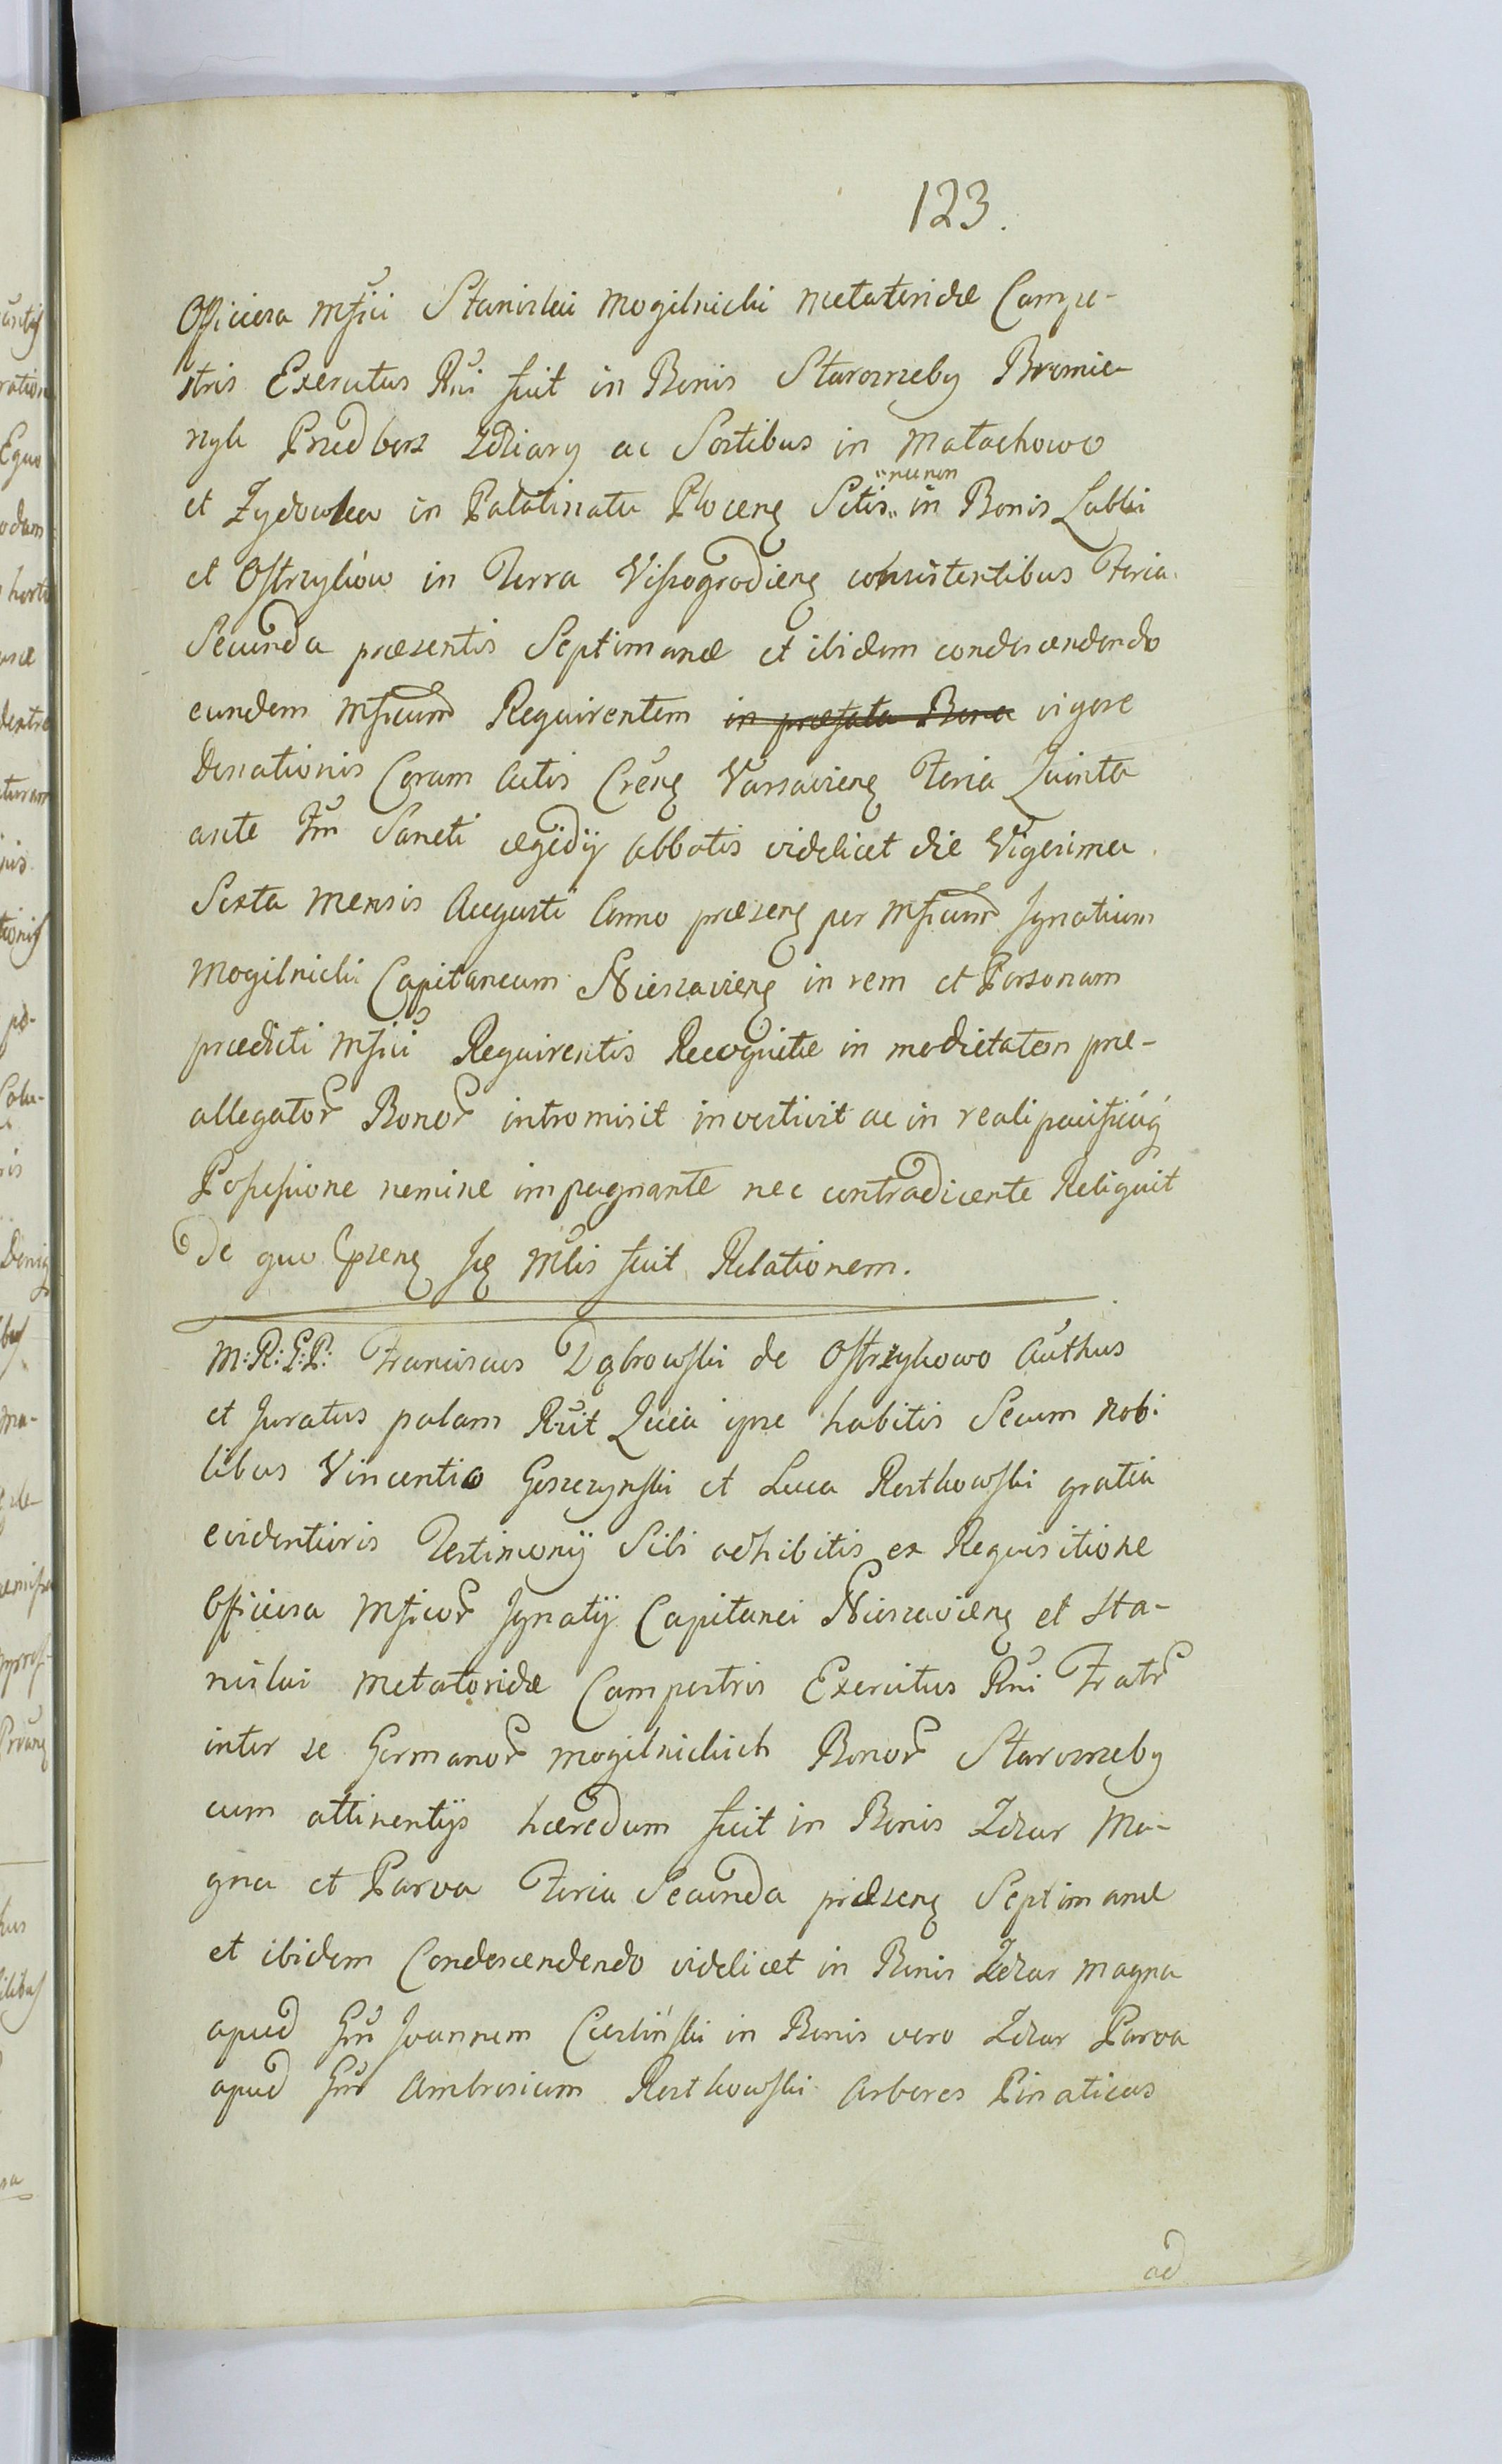 123.
Officiosa Mfici Stanislai Mogilnicki Metatoridae Campe-
stris Exercitus Rni fuit in Bonis Starozreby Bromie-
rzyk Przedborz Zdziary ac Sortibus in Małachowo
et Zydowka in Palatinatu Plocen Sitis " necnon in Bonis Lubki
et Ostrzykow in Terra Vissogrodien consistentibus Feria
Secunda praesentis Septimanae et ibidem condescendendo
eundem Mficum Requirentem in praefata Bona vigore
Donationis Coram Actis Cren Varsavien Feria Quinta
ante Fm Sancti Aegidij Abbatis videlicet die Vigesima
Sexta Mensis Augusti Anno praesen per Mficum Ignatium
Mogilnicki Capitaneum Nieszavien in rem et Personam
praedicti Mfici Requirentis Recognitae in medietatem prae-
allegator Bonor intromisit investivit ac in reali pacificaq
Possessione nemine impugnante nec contradicente Reliquit
De quo praen sq Mlis fuit Relationem.
M: R: G: P: Franciscus Dąbrowski de Ostrzykowo Authus
et Juratus palam Ruit Quia ipse habitis Secum Nobi
libus Vincentio Goszczynski et Luca Rostkowski gratia
evidentioris Testimonij Sibi adhibitis ex Requisitione
Officiosa Mficor Ignatij Capitanei Nieszavien et Sta-
nislai Metatoridae Campestris Exercitus Rni Fratr
inter se Germanor Mogilnickich Bonor Starozreby
cum attinentijs haeredum fuit in Bonis Zdzar Ma-
gna et Parva Feria Secunda praesen Septimanae
et ibidem Condescendendo videlicet in Bonis Zdzar Magna
apud Gm Joannem Ciesliński in Bonis vero Zdzar Parva
apud Gm Ambrosium Rostkowski Arbores Pinaticas
ad